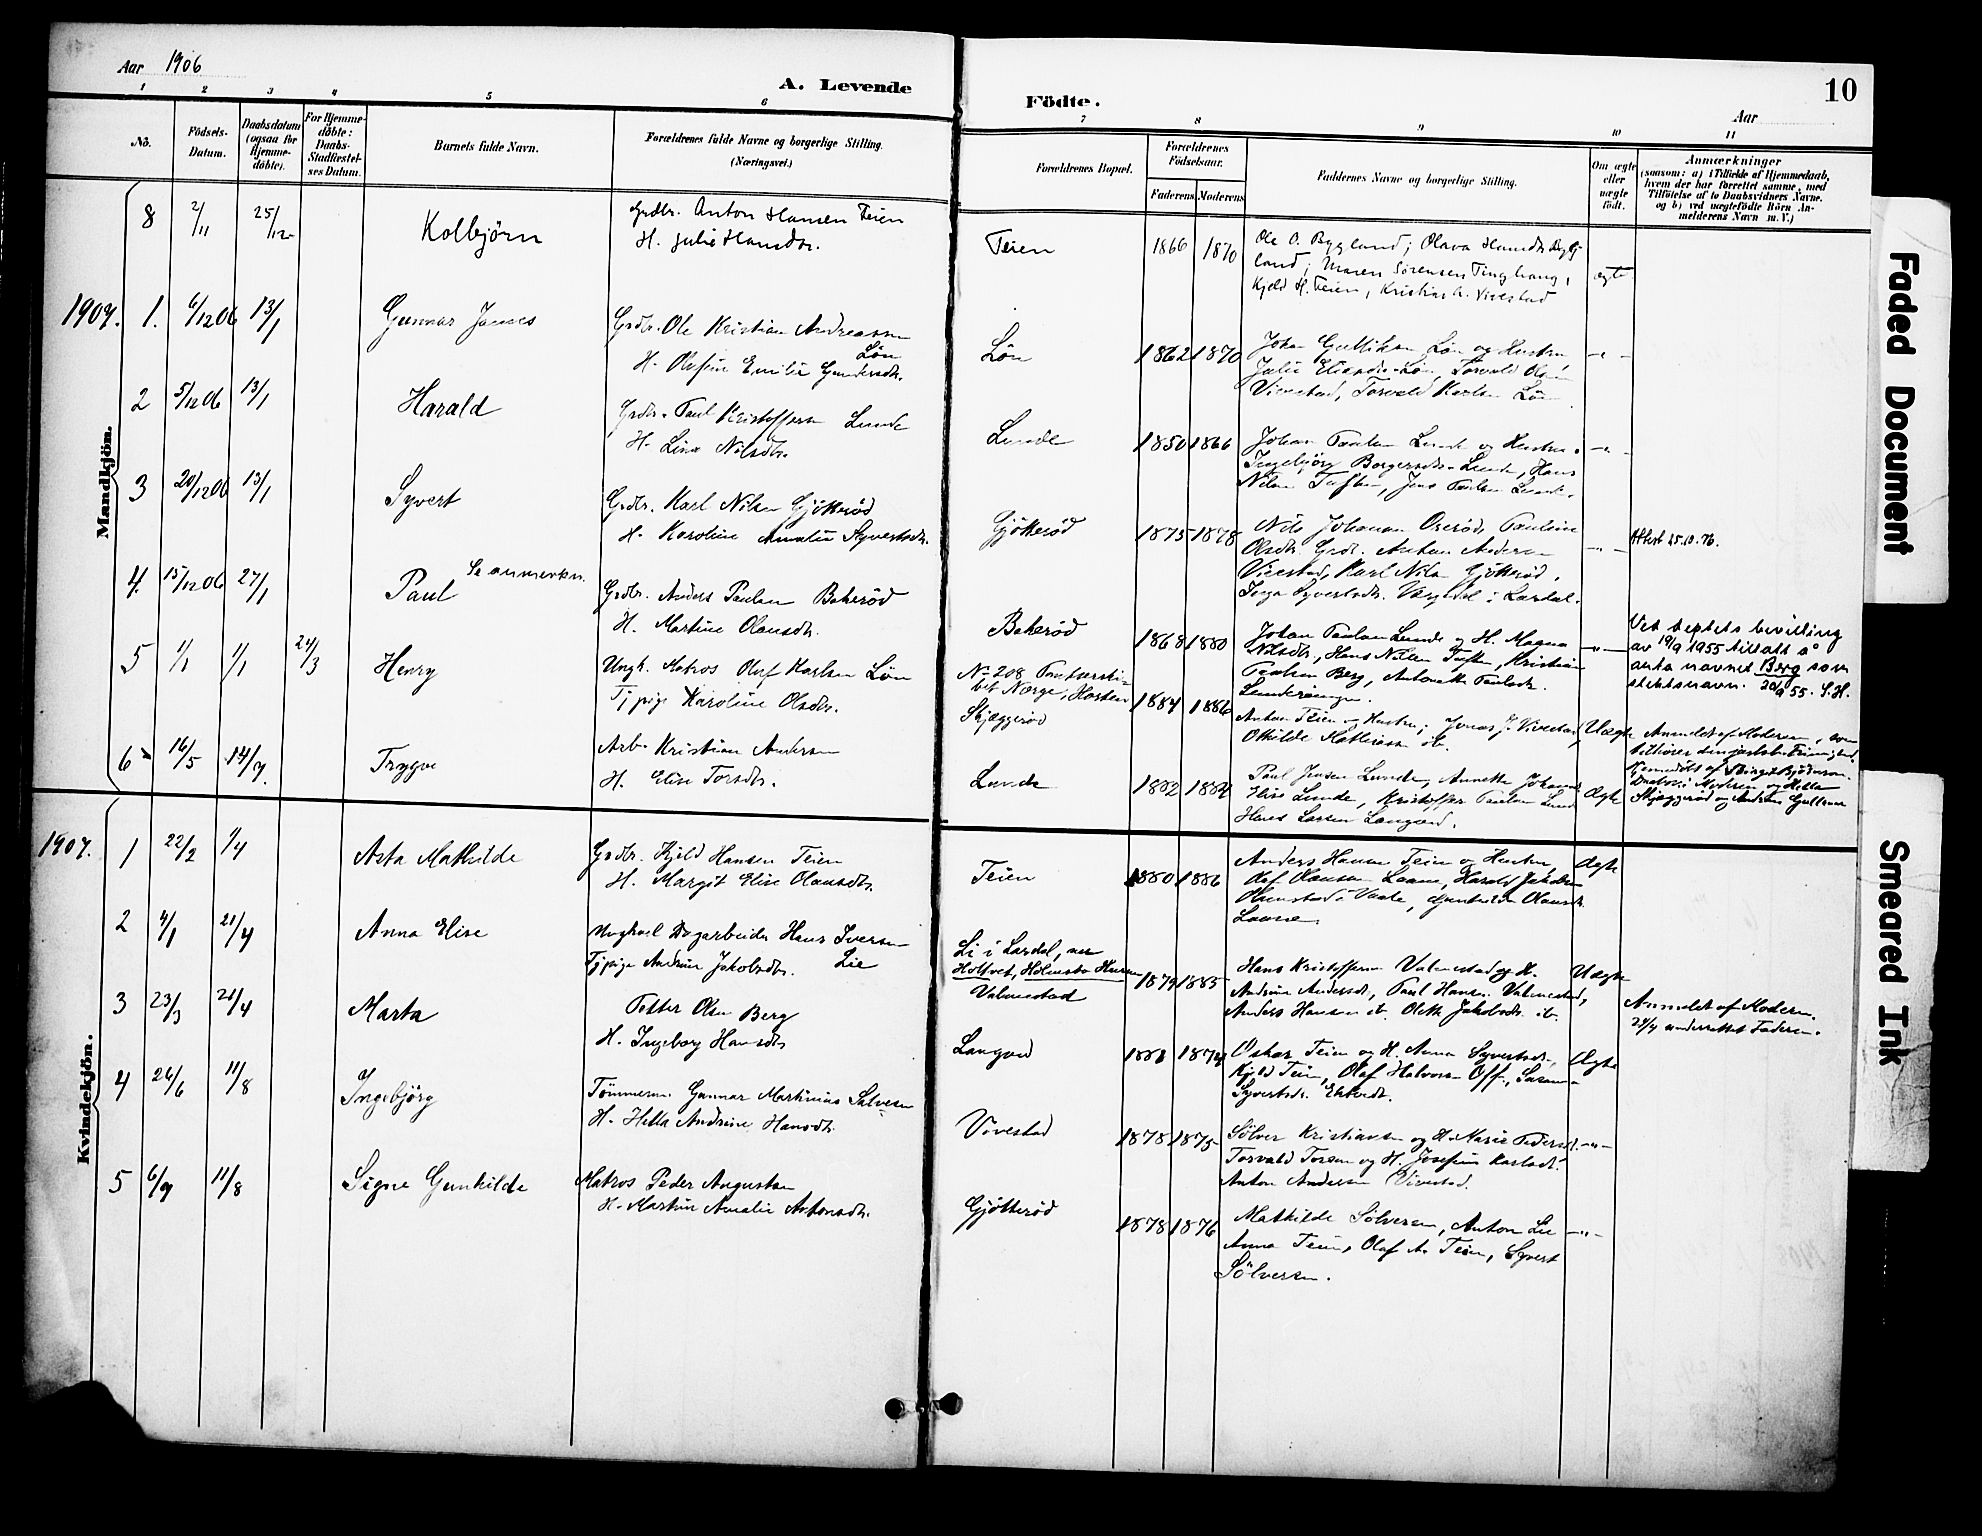 Aar 1906
A. Levende
Fødte.
Aar
10
1 2 3 4 5 6 7 8 9 10 11
No.
Fødsels-
Datum.
Daabsdatum
(ogsaa for
Hjemme-
døbte).
For Hjemme-
døbte:
Daabs-
Stadfæstel-
ses Datum.
Barnets fulde Navn.
Forældrenes fulde Navne og borgerlige Stilling.
(Næringsvei.)
Forældrenes Bopæl.
Forældrenes
Fødselsaar.
Faderens Moderens
Faddernes Navne og borgerlige Stilling.
Om ægte
eller
uægte
født.
Anmærkninger
(saasom: a) i Tilfælde af Hjemmedaab,
hvem der har forrettet samme, med
Tilføielse af to Daabsvidners Navne.
og b) ved uægtefødte Børn An-
melderens Navn m. V.)
Mandkjøn.
8 2/11 25/12 Kolbjørn
Grdbr. Anton Hansen Teien
H. Julie Hansdtr.
Teien 1866 1870
Ole O. Bygland; Olava Hansdtr Byg
land; Maren Sørensen Tinghaug,
Kjeld H. Teien, Kristian A. Vivestad
ægte
1907. 1. 6/12 06 13/1 Gunnar James
Grdbr. Ole Kristian Andreassen
Løn
H. Olefine Emilie Gundersdtr.
Løn 1862 1870
Johan Gulliksen Løn og Hustru
Julie Eliasdtr. Løn, Torvald Olsen
Vivestad, Torvald Karlsen Løn
-"-
2 5/12 06 13/1 Harald
Grdbr. Paul Kristoffersen Lunde
H. Lina Nilsdtr.
Lunde 1850 1866
Johan Paulsen Lunde og Hustru
Ingebjørg Borgersdtr. Lunde, Hans
Nilsen Tuften, Jens Paulsen Lunde.
-"-
3 20/12 06 13/1 Syvert
Grdbr. Karl Nilsen Gjøtterød
H. Karoline Amalie Syvertsdtr.
Gjøtterød 1875 1878
Nils Johansen Oserød, Pauline
Olsdtr. Grdbr. Anton Andersen
Vivestad, Karl Nilsen Gjøtterød,
Inga Syvertsdtr. i Lardal.
-"-
Attest 25.10.76.
4. 15/12 06 27/1 Paul Se anmerkn.
Grdbr. Anders Paulsen Bakerød
H. Martine Olausdtr.
Bakerød 1868 1880
Johan Paulsen Lunde og H. Magna
Nilsdtr, Hans Nilsen Tuften, Kristian
Paulsen Berg, Antonette Paulsdtr.
-"-
Ved deptets bevilling
av 19/9 1955 tillatt å
anta navnet Berg som
slektsnavn. 20/9 55. S.H.
5 1/1 1/1 24/3 Henry
Ungk. Matros Olaf Karlsen Løn
Tjpige Karoline Olsdtr.
Skjeggerød
1884 1886
Anton Teien og Hustru, Jonas J. Vivestad,
Othilde Mathiassen ib.
Uægte
Anmeldt af Moderen, som
Hjemmedøbt af Birgit Bjørnson.
Moderen og Hella
Skjeggerød og Andreas Gulliksen
6 16/5 14/7 Trygve
Arb. Kristian Andersen
H. Elise Torsdtr.
Lunde 1882 1884
Paul Jensen Lunde, Annette Johannes
Elise Lunde, Kristoffer Paulsen Lunde
Hans Larsen Langved.
Ægte
Kvindekjøn.
1907. 1 22/2 1/4 Asta Mathilde
Grdbr. Kjeld Hansen Teien
H. Margit Elise Olausdtr.
Teien 1880 1886
Anders Hansen Teien og Hustru,
Olaf Olausen Laane, Harald Jakobsen
i Vaale, Gunhilda Olausdtr.
Laane.
Ægte
2 4/1 21/4 Anna Elise
Ungkarl Dagarbeider Hans Iversen
Lie
Tjpige Andrine Jakobsdtr.
Li i Lardal, nu
Holtvet, Holmsbo Hurum
Valmestad
1879 1885
Hans Kristoffersen Valmestad og H.
Andrine Andersdtr, Paul Hansen Valmestad,
Anders Hansen ib. Olette Jakobsdtr. ib.
Uægte
Anmeldt af Moderen.
29/4 underrettet Faderen.
3 23/3 21/4 Marta
Petter Olsen Berg
H. Ingeborg Hansdtr
Langved 1881 1874
Oskar Teien og H. Anna Syvertsdtr,
Kjeld Teien, Olaf Halvorsen Off.,
Syvertsdtr.
Ægte
4 26/6 11/8 Ingebjørg
Tømmerm. Gunnar Martinius Salvesen
H. Hella Andrine Hansdtr.
Vivestad 1878 1875
Sølver Kristiansen og H. Marie Pedersdtr.
Torvald Torsen og H. Josefine Karlsdtr.
Anton Andersen Vivestad.
-"-
5 6/7 11/8 Signe Gunhilde
Matros Peder Augustsen
H. Martine Amalie Antonsdtr.
Gjøtterød 1878 1876
Mathilde Sølversen, Anton Lie
Anna Teien, Olaf A. Teien, Syvert
Sølversen.
-"-
Faded Document
Smeared Ink